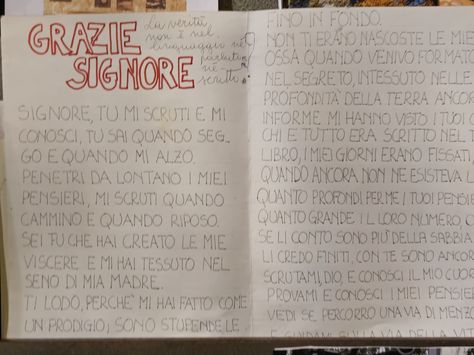 GRAZIE
SIGNORE
La verità
non è nel
linguaggio né
SIGNORE, TU MI SCRUTI E MI
CONOSCI, TU SAI QUANDO SEG-
GO E QUANDO MI ALZO.
PENETRI DA LONTANO I MIEI
PENSIERI, MI SCRUTI QUANDO
CAMMINO E QUANDO RIPOSO.
SEI TU CHE HAI CREATO LE MIE
VISCERE E MI HAI TESSUTO NEL
SENO DI MIA MADRE.
TI LODO, PERCHÈ MI HAI FATTO COME
UN PRODIGIO; SONO STUPENDE LE
FINO IN FONDO.
NON TI ERANO NASCOSTE LE MIE
OSSA QUANDO VENIVO FORMATO
NEL SEGRETO, INTESSUTO NELLE
PROFONDITÀ DELLA TERRA ANCOR
INFORME MI HANNO VISTO I TUOI
CHI E TUTTO ERA SCRITTO NEL
LIBRO, I MIEI GIORNI ERANO FISSATI
QUANDO ANCORA NON NE ESISTEVA
QUANTO PROFONDI PER ME I TUOI PENSIE
QUANTO GRANDE IL LORO NUMERO,
SE LI CONTO SONO PIÙ DELLA SABBIA
LI CREDO FINITI, CON TE SONO ANCOR
SCRUTAMI, DIO, E CONOSCI IL MIO CUO
PROVAMI E CONOSCI I MIEI PENSIE
VEDI SE PERCORRO UNA VIA DI MENZO